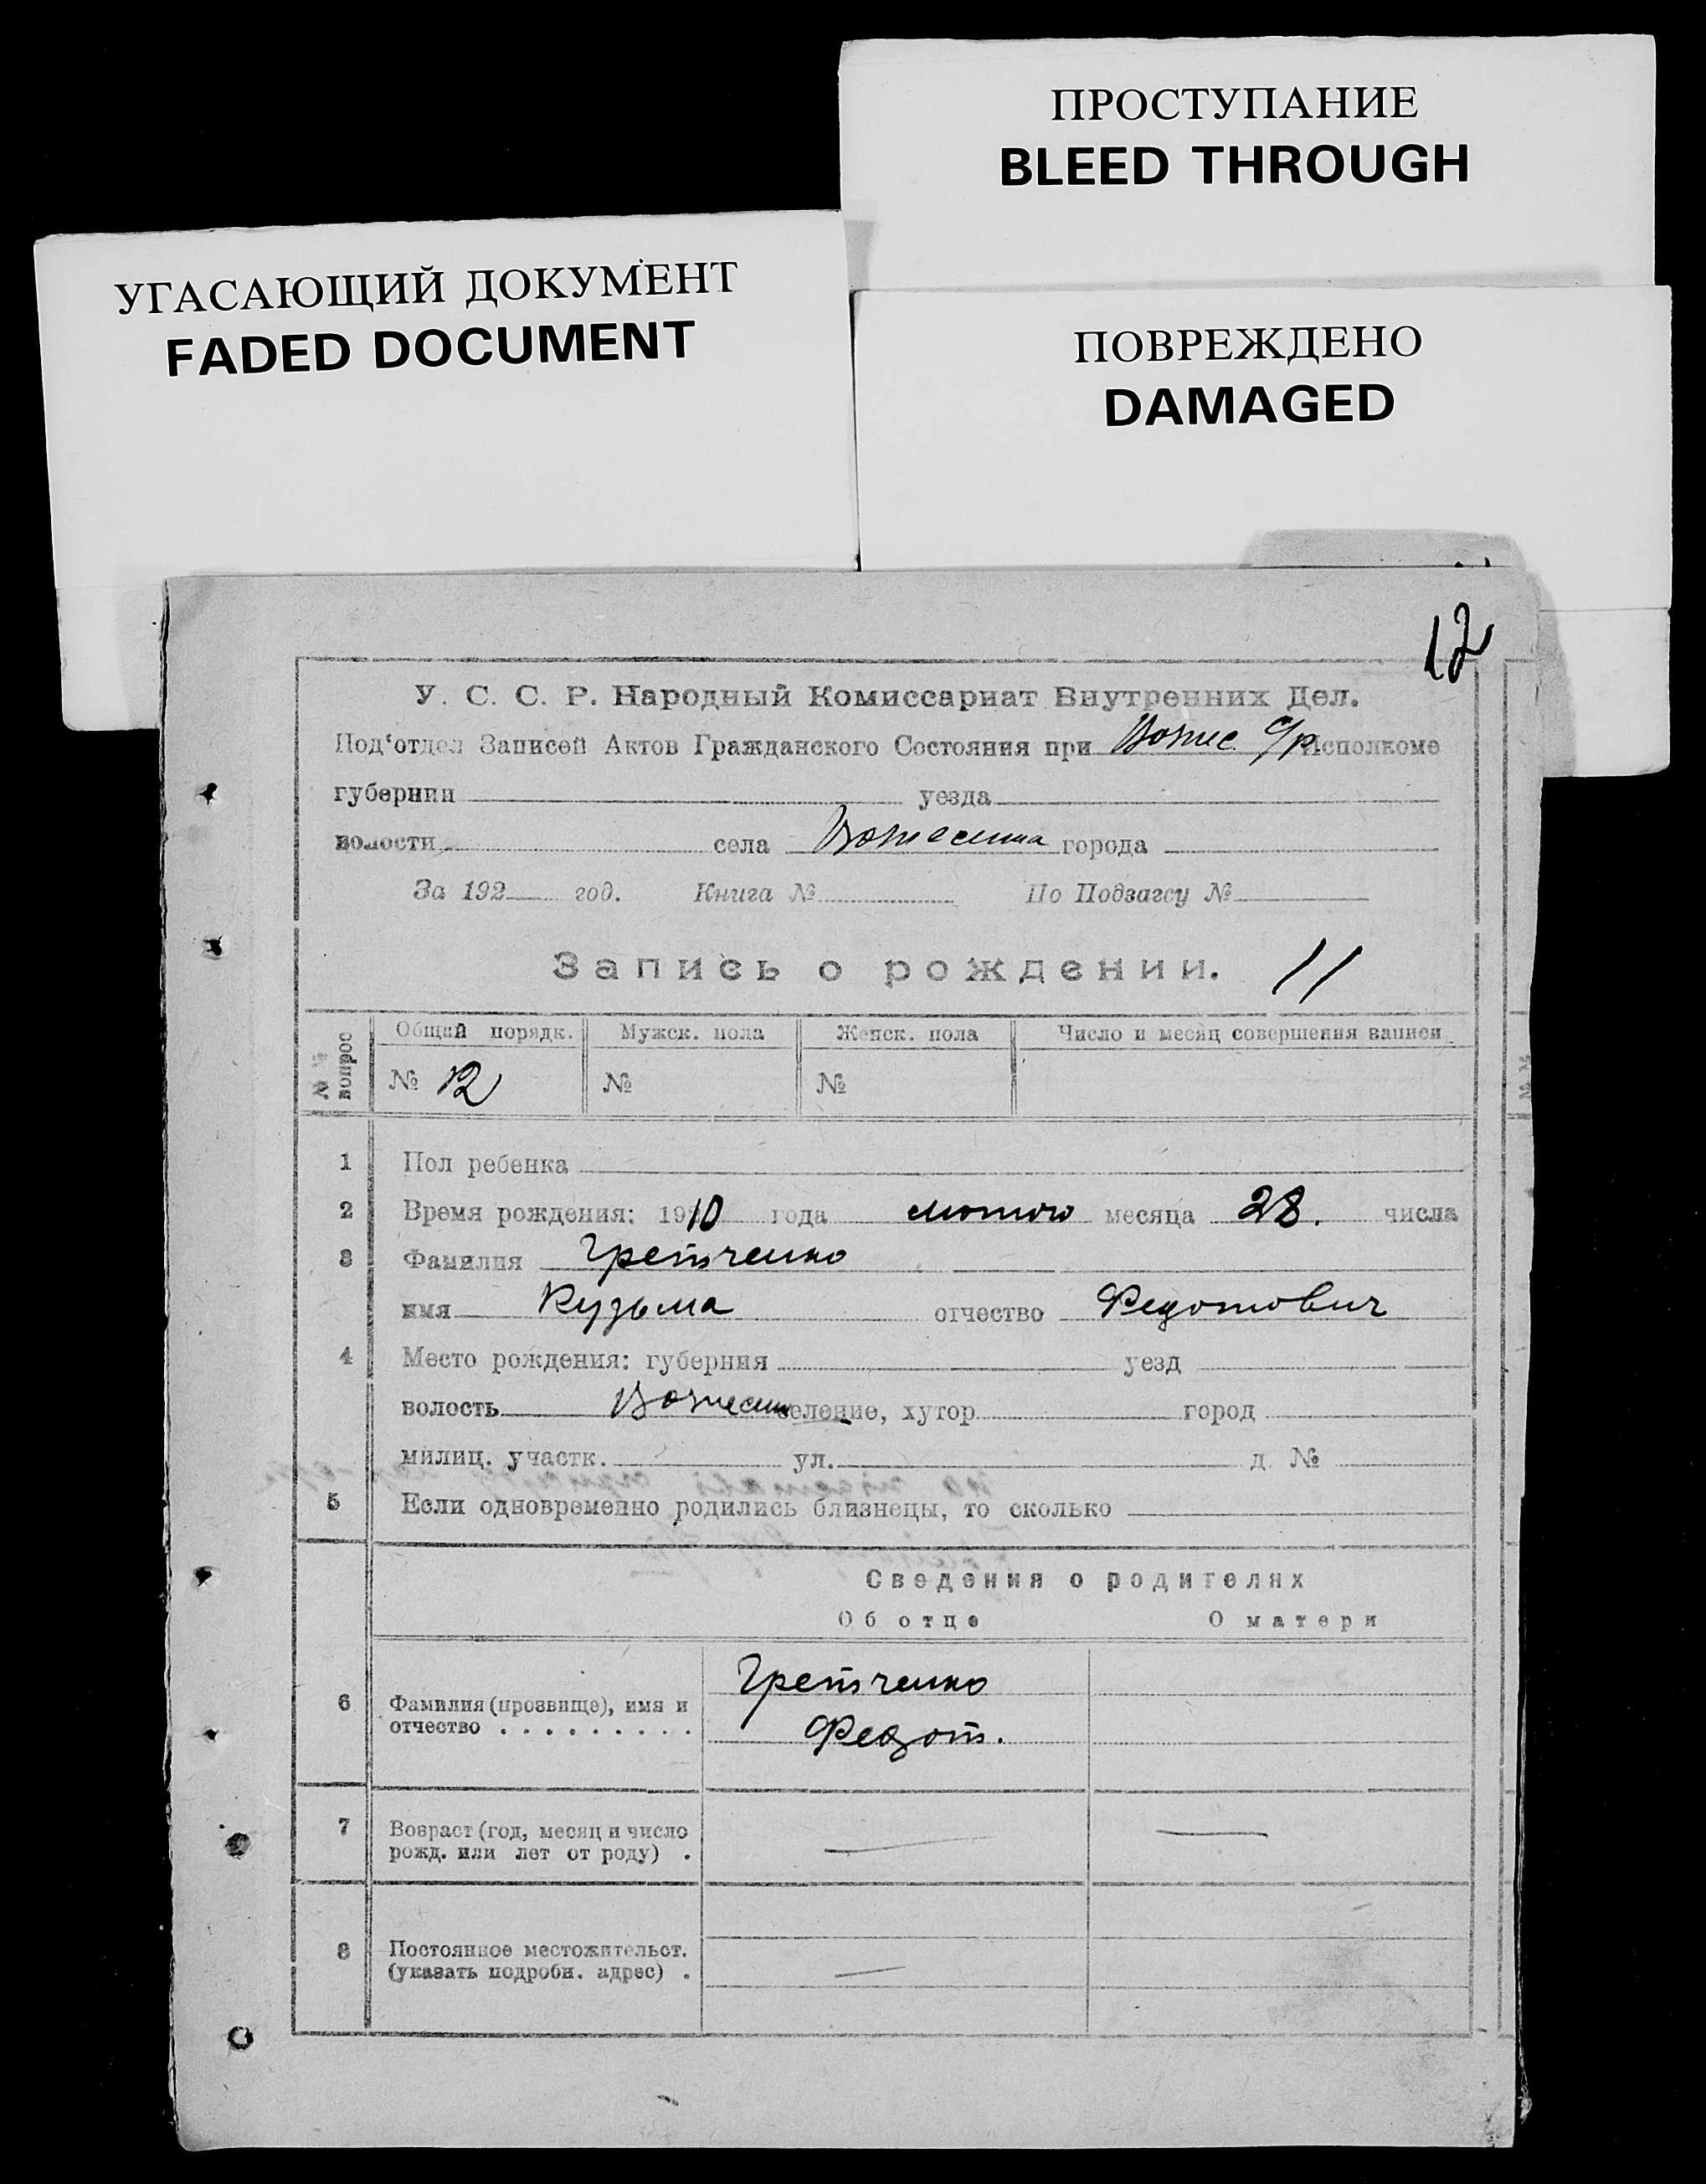 ПРОСТУПАНИЕ
BLEED THROUGH
УГАСАЮЩИЙ ДОКУМЕНТ
FADED DOCUMENT
ПОВРЕЖДЕНО
DAMAGED
12
У. С. С. Р. Народный Комиссариат Внутренних Дел.
Под'отдел Записей Актов Гражданского Состояния при Вознес. с/р Исполкоме
губернии уезда
волости села города
За 192 год. Книга № По Подзагсу №
Запись о рождении. 11
№№ вопрос
Общий порядк. Мужск. пола Женск. пола Число и месяц совершения записи
№ 12 № №
1 Пол ребенка
2 Время рождения: 1910 года лютого месяца 28. числа
3 Фамилия Гретченко
имя Кузьма отчество Федотович
4 Место рождения: губерния уезд
волость селение, хутор город
милиц. участк. ул. д. №
5 Если одновременно родились близнецы, то сколько
Сведения о родителях
Об отце О матери
6 Фамилия (прозвище), имя и отчество . . . . . . . . .
Гретченко
Федот.
7 Возраст (год, месяц и число
рожд. или лет от роду) .
8 Постоянное местожительст.
(указать подробн. адрес) .